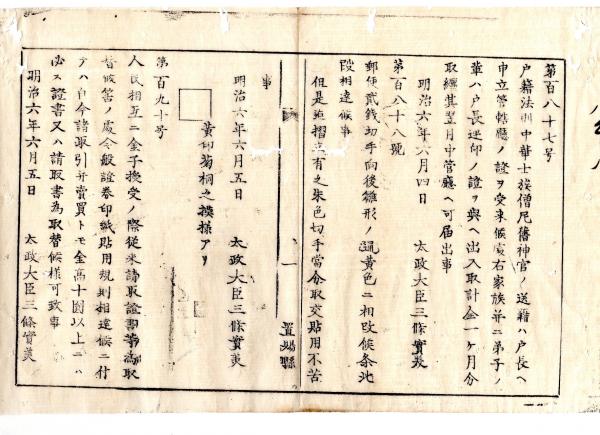 第百八十七号
戸籍法則中華士族僧尼舊神官ノ送籍ハ戸長ヘ
申立管轄廳ノ證ヲ受来候處右家族並ニ弟子ノ
輩ハ戸長連印ノ證ヲ與ヘ出入取計金一ヶ月分
取纒其翌月中管廳ヘ可届出事
明治六年六月四日 太政大臣三條實美
第百八十八號
郵便貳銭切手向後雛形ノ通黄色ニ相改候条此
段相達候事
但是迠摺立有之朱色切手當分取交貼用不苦
事
明治六年六月五日 太政大臣三條實美
一
置賜縣
黄印菊桐之模様アリ
第百九十号
人民相互ニ金子授受ノ際従来請取證書等為取
替候筈ノ處今般證券印紙貼用規則相達候ニ付
テハ自今諸取引并賣買トモ金高十圓以上ニハ
必ス證書又ハ請取書為取替候様可致事
明治六年六月五日 太政大臣三條實美